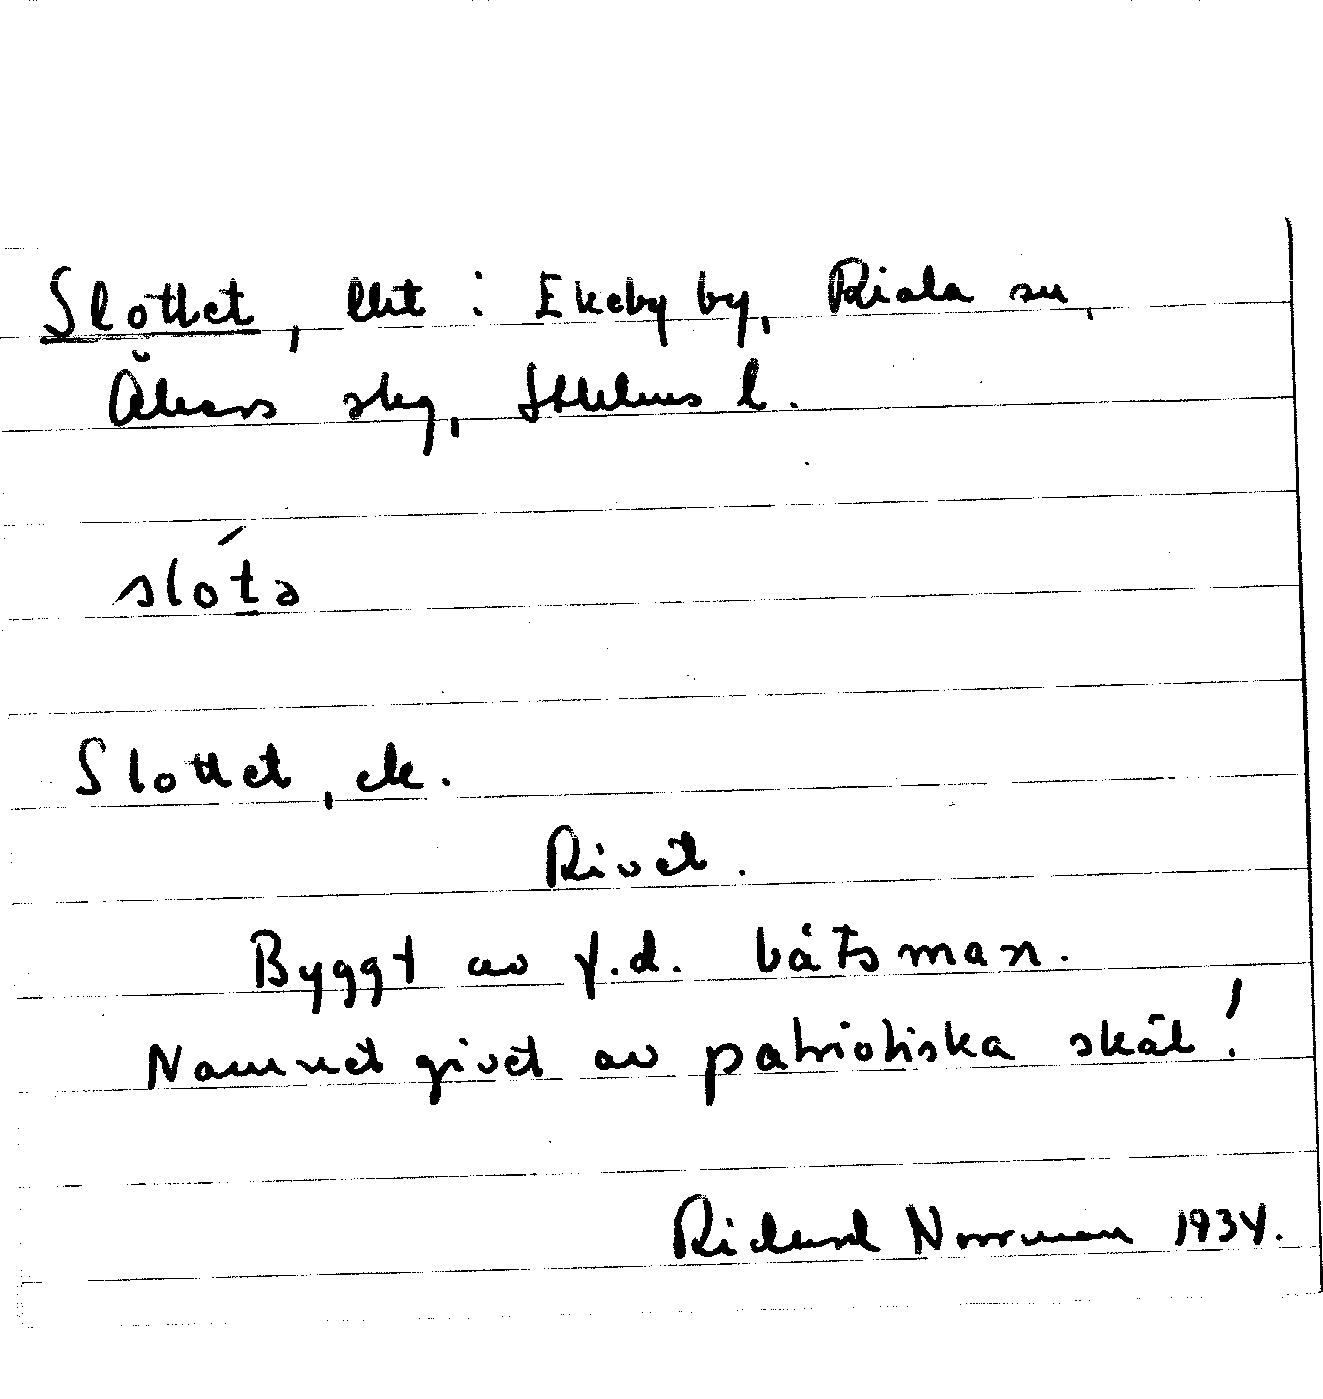 Slottet, lht i Ekeby by, Riala sn,
Åkers skg, Sthlms l.
slót̲ə
Slottet, ek.
Rivet.
Byggt av f.d. båtsman.
Namnet givet av patriotiska skäl!
Richard Norrman 1934.